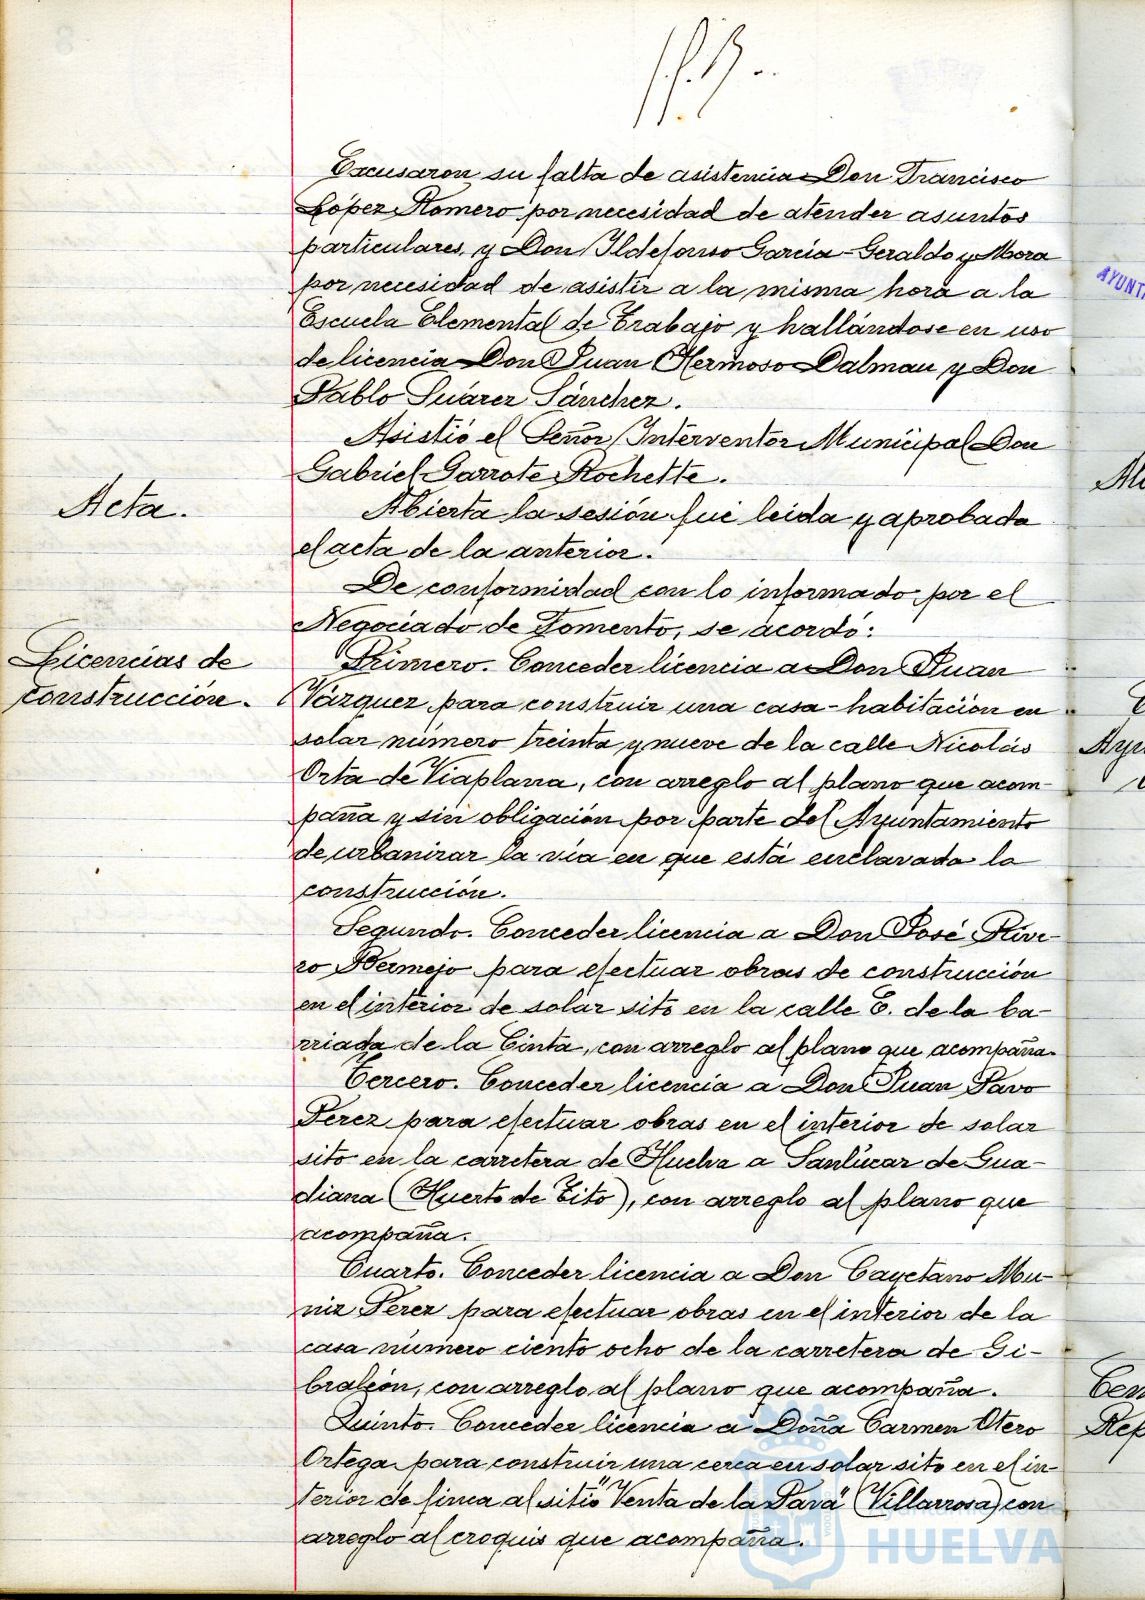 Excusaron su falta de asistencia Don Francisco
López Romero por necesidad de atender asuntos
particulares, y Don Ildefonso García-Geraldo y Mora
por necesidad de asistir a la misma hora a la
Escuela Elemental de Trabajo y hallándose en uso
de licencia Don Juan Hermoso Dalmau y Don
Pablo Suárez Sánchez.
Asistió el Señor Interventor Municipal Don
Gabriel Garrote Rochette.
Acta.
Abierta la sesión fue leida y aprobada
el acta de la anterior.
De conformidad con lo informado por el
Negociado de Fomento, se acordó:
Licencias de
construcción.
Primero. Conceder licencia a Don Juan
Vázquez para construir una casa-habitación en
solar número treinta y nueve de la calle Nicolás
Orta de Viaplana, con arreglo al plano que acom-
paña y sin obligación por parte del Ayuntamiento
de urbanizar la vía en que está enclavada la
construcción.
Segundo. Conceder licencia a Don José Rive-
ro Bermejo para efectuar obras de construcción
en el interior de solar sito en la calle E. de la ba-
rriada de la Cinta, con arreglo al plano que acompaña.
Tercero. Conceder licencia a Don Juan Pavo
Perez para efectuar obras en el interior de solar
sito en la carretera de Huelva a Sanlúcar de Gua-
diana (Huerto de Tito), con arreglo al plano que
acompaña.
Cuarto. Conceder licencia a Don Cayetano Mu-
niz Perez para efectuar obras en el interior de la
casa número ciento ocho de la carretera de Gi-
braleón, con arreglo al plano que acompaña.
Quinto. Conceder licencia a Doña Carmen Otero
Ortega para construir una cerca en solar sito en el in-
terior de finca al sitio "Venta de la Pava" (Villarrosa) con
arreglo al croquis que acompaña.
HUELVA